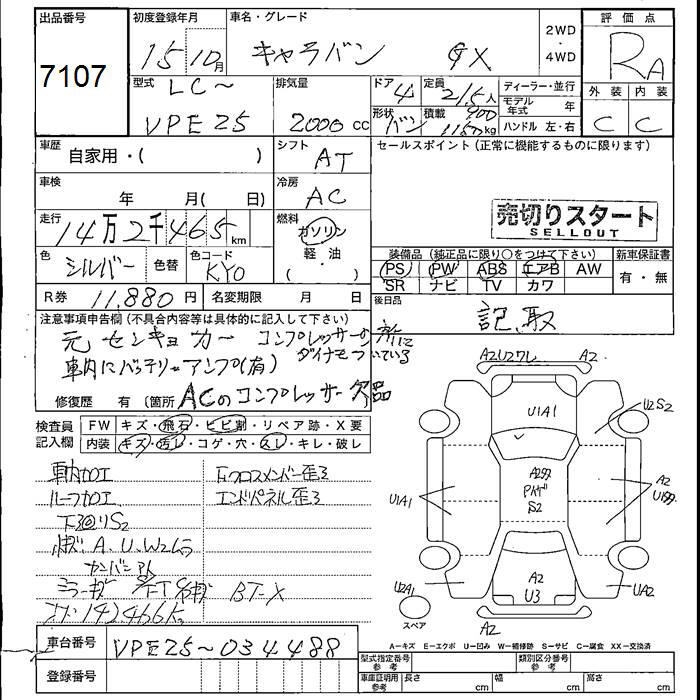 出品番号
7107
初度登録年月
15 10月
車名・グレード
キャラバン GX
2WD
・
4WD
評価点
RA
外装 内装
C C
型式
LC～
VPE25
排気量
2000 cc
ドア 4
定員 2/5人
形状 バン
積載 kg
ディーラー・並行
モデル年式 年
ハンドル 左・右
車歴
自家用・( )
シフト
AT
セールスポイント (正常に機能するものに限ります)
車検
年 月( 日)
冷房
AC
売切りスタート
SELLOUT
走行
14万2千465km
燃料
ガソリン
軽・油
・( )
色
シルバー
色替
色コード
KY0
装備品 (純正品に限り○をつけて下さい)
新車保証書
PS PW ABS エアB AW
SR ナビ TV カワ
有・無
R券 11,880円
名変期限 月 日
後日品
記,取
注意事項申告欄 (不具合内容等は具体的に記入して下さい)
元センキョカー コンプレッサーの
ダイナモついている
車内にバッテリーアンプ(有)
修復歴 有 (箇所 ACのコンプレッサー欠品
検査員記入欄
FW キズ・飛石・ヒビ割・リペア跡・X要
内装 キズ・汚レ・コゲ・穴・スレ・キレ・破レ
車内加工
ルーフ加工
下廻りS2
F.クロスメンバー歪3
エンドパネル歪3
BT-X
142466K
A2U2ワレ
A2
U1A1
U2S2
A2
S2
U1A1
A2
U2A1
A2
U3
UA2
A2
スペア
A－キズ E－エクボ U－凹み W－補修跡 S－サビ C－腐食 XX－交換済
車台番号
VPE25～034488
登録番号
型式指定番号
参考
類別区分番号
参考
車庫証明用
参考
長さ cm
幅 cm
高さ cm